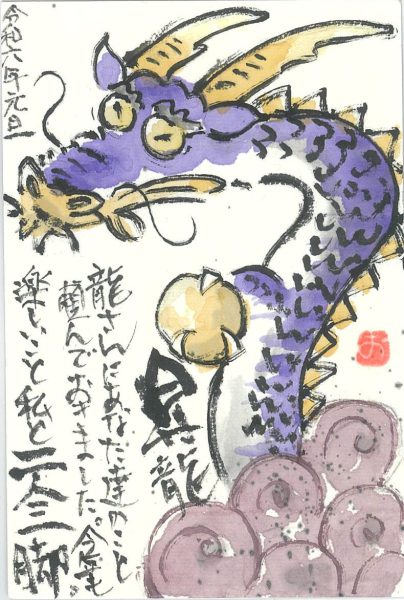 昇龍
龍さんにあなた達のこと
頼んでおきました。今年も
楽しいこと私と二人三脚
令和六年元旦